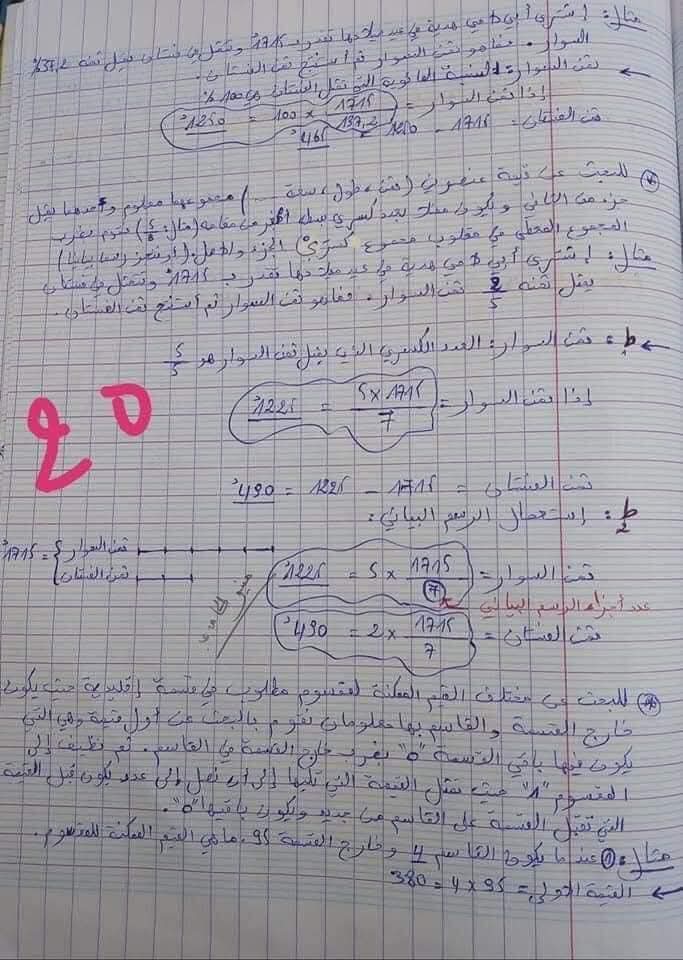 مثال: اشترى أبي لأمي هدية في عيد ميلادها تقدر بـ 1715د وتتمثل في فستان يمثل ثمنه 37,2%
السوار. فما هو ثمن السوار ثم أستنتج ثمن الفستان.
ثمن السوار: النسبة المائوية التي تمثل الفستان هي 100%
إذا ثمن السوار = 1715/137,2 × 100 = 1250د
ثمن الفستان = 1715 - 1250 = 465د
للبحث عن قيمة عنصرين (ثمن، طول، سعة ....) مجموعهما معلوم وأحدهما يمثل
جزء من الثاني ويكون ممثلا بعدد كسري بسطه أصغر من مقامه (مثال: 5/8) نقوم بضرب
المجموع المعطى في مقلوب مجموع كسري الجزء والكل. (أو ننجز رسما بيانيا)
مثال: اشترى أبي لأمي هدية في عيد ميلادها تقدر بـ 1715د وتتمثل في فستان
يمثل ثمنه 2/5 ثمن السوار. فما هو ثمن السوار ثم أستنتج ثمن الفستان.
ط1: ثمن السوار: العدد الكسري الذي يمثل ثمن السوار هو 5/5
إذا ثمن السوار = 5×1715/7 = 1225د
20
ثمن الفستان = 1715 - 1225 = 490د
ط2: استعمال الرسم البياني:
ثمن السوار
1715د =
ثمن الفستان
ثمن السوار = 1715/7 × 5 = 1225د
عدد أجزاء الرسم البياني
ثمن الفستان = 1715/7 × 2 = 490د
للبحث عن مختلف القيم الممكنة لمقسوم مطلوب في قسمة إقليدية حيث يكون
خارج القسمة والقاسم بها معلومان نقوم بالبحث عن أول قيمة وهي التي
يكون فيها باقي القسمة "0" بضرب خارج القسمة في القاسم. ثم نضيف إلى
المقسوم "1" حيث تمثل القيمة التي تليها إلى أن نصل إلى عدد يكون قبل القيمة
التي تقبل القسمة على القاسم من جديد ويكون باقيها "0".
مثال: 1 عند ما يكون القاسم 4 وخارج القسمة 95. ما هي القيم الممكنة للمقسوم.
القيمة الأولى = 95 × 4 = 380